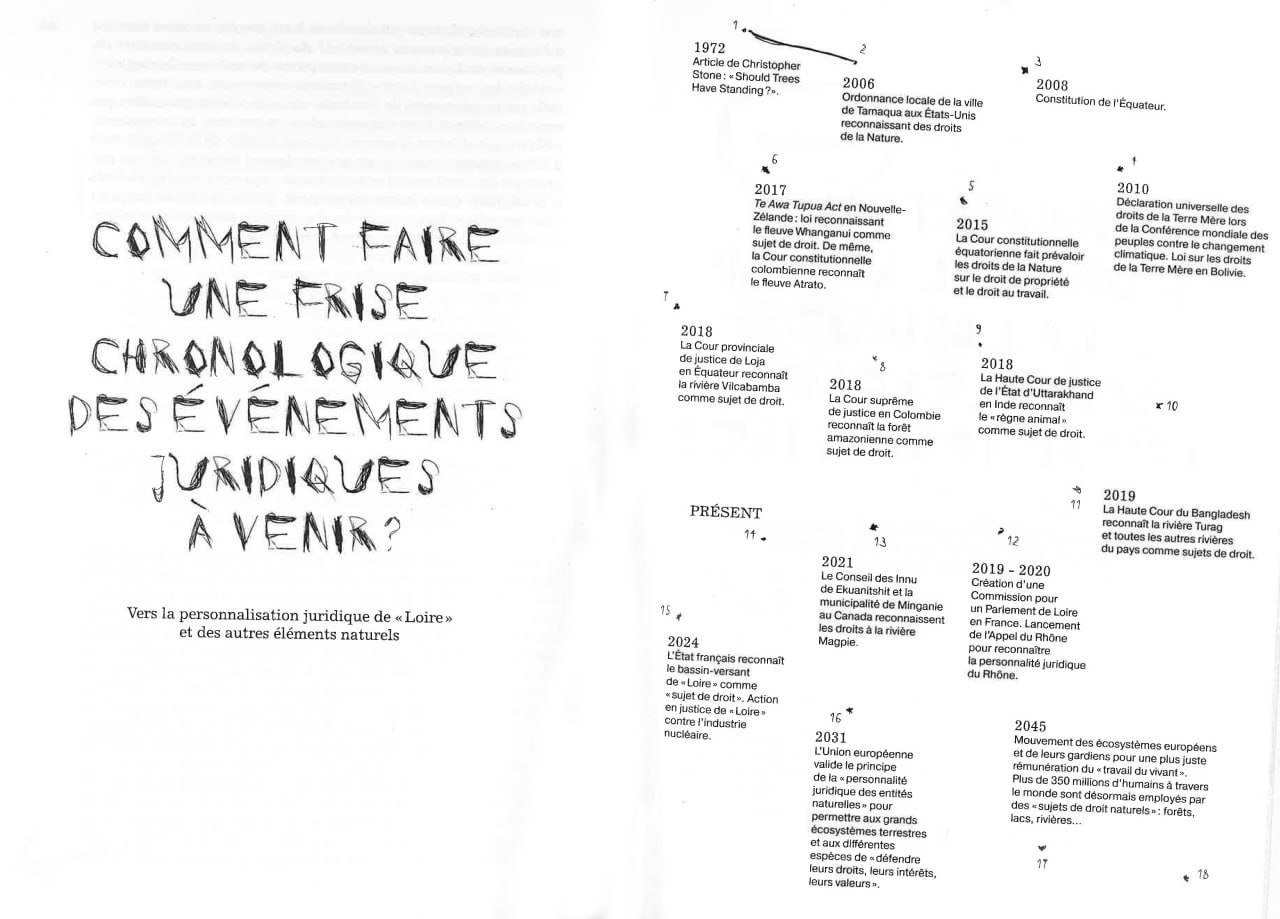 COMMENT FAIRE
UNE FRISE
CHRONOLOGIQUE
DES ÉVÉNEMENTS
JURIDIQUES
À VENIR?
Vers la personnalisation juridique de « Loire »
et des autres éléments naturels
1
1972
Article de Christopher
Stone : « Should Trees
Have Standing ? ».
2
2006
Ordonnance locale de la ville
de Tamaqua aux États-Unis
reconnaissant des droits
de la Nature.
3
2008
Constitution de l’Équateur.
6
2017
Te Awa Tupua Act en Nouvelle-
Zélande : loi reconnaissant
le fleuve Whanganui comme
sujet de droit. De même,
la Cour constitutionnelle
colombienne reconnaît
le fleuve Atrato.
5
2015
La Cour constitutionnelle
équatorienne fait prévaloir
les droits de la Nature
sur le droit de propriété
et le droit au travail.
4
2010
Déclaration universelle des
droits de la Terre Mère lors
de la Conférence mondiale des
peuples contre le changement
climatique. Loi sur les droits
de la Terre Mère en Bolivie.
7
2018
La Cour provinciale
de justice de Loja
en Équateur reconnaît
la rivière Vilcabamba
comme sujet de droit.
8
2018
La Cour suprême
de justice en Colombie
reconnaît la forêt
amazonienne comme
sujet de droit.
9
2018
La Haute Cour de justice
de l’État d’Uttarakhand
en Inde reconnaît
le « règne animal »
comme sujet de droit.
10
11
2019
La Haute Cour du Bangladesh
reconnaît la rivière Turag
et toutes les autres rivières
du pays comme sujets de droit.
PRÉSENT
14
13
2021
Le Conseil des Innu
de Ekuanitshit et la
municipalité de Minganie
au Canada reconnaissent
les droits à la rivière
Magpie.
12
2019 - 2020
Création d’une
Commission pour
un Parlement de Loire
en France. Lancement
de l’Appel du Rhône
pour reconnaître
la personnalité juridique
du Rhône.
15
2024
L’État français reconnaît
le bassin-versant
de « Loire » comme
« sujet de droit ». Action
en justice de « Loire »
contre l’industrie
nucléaire.
16
2031
L’Union européenne
valide le principe
de la « personnalité
juridique des entités
naturelles » pour
permettre aux grands
écosystèmes terrestres
et aux différentes
espèces de « défendre
leurs droits, leurs intérêts,
leurs valeurs ».
2045
Mouvement des écosystèmes européens
et de leurs gardiens pour une plus juste
rémunération du « travail du vivant ».
Plus de 350 millions d’humains à travers
le monde sont désormais employés par
des « sujets de droit naturels » : forêts,
lacs, rivières…
17
18